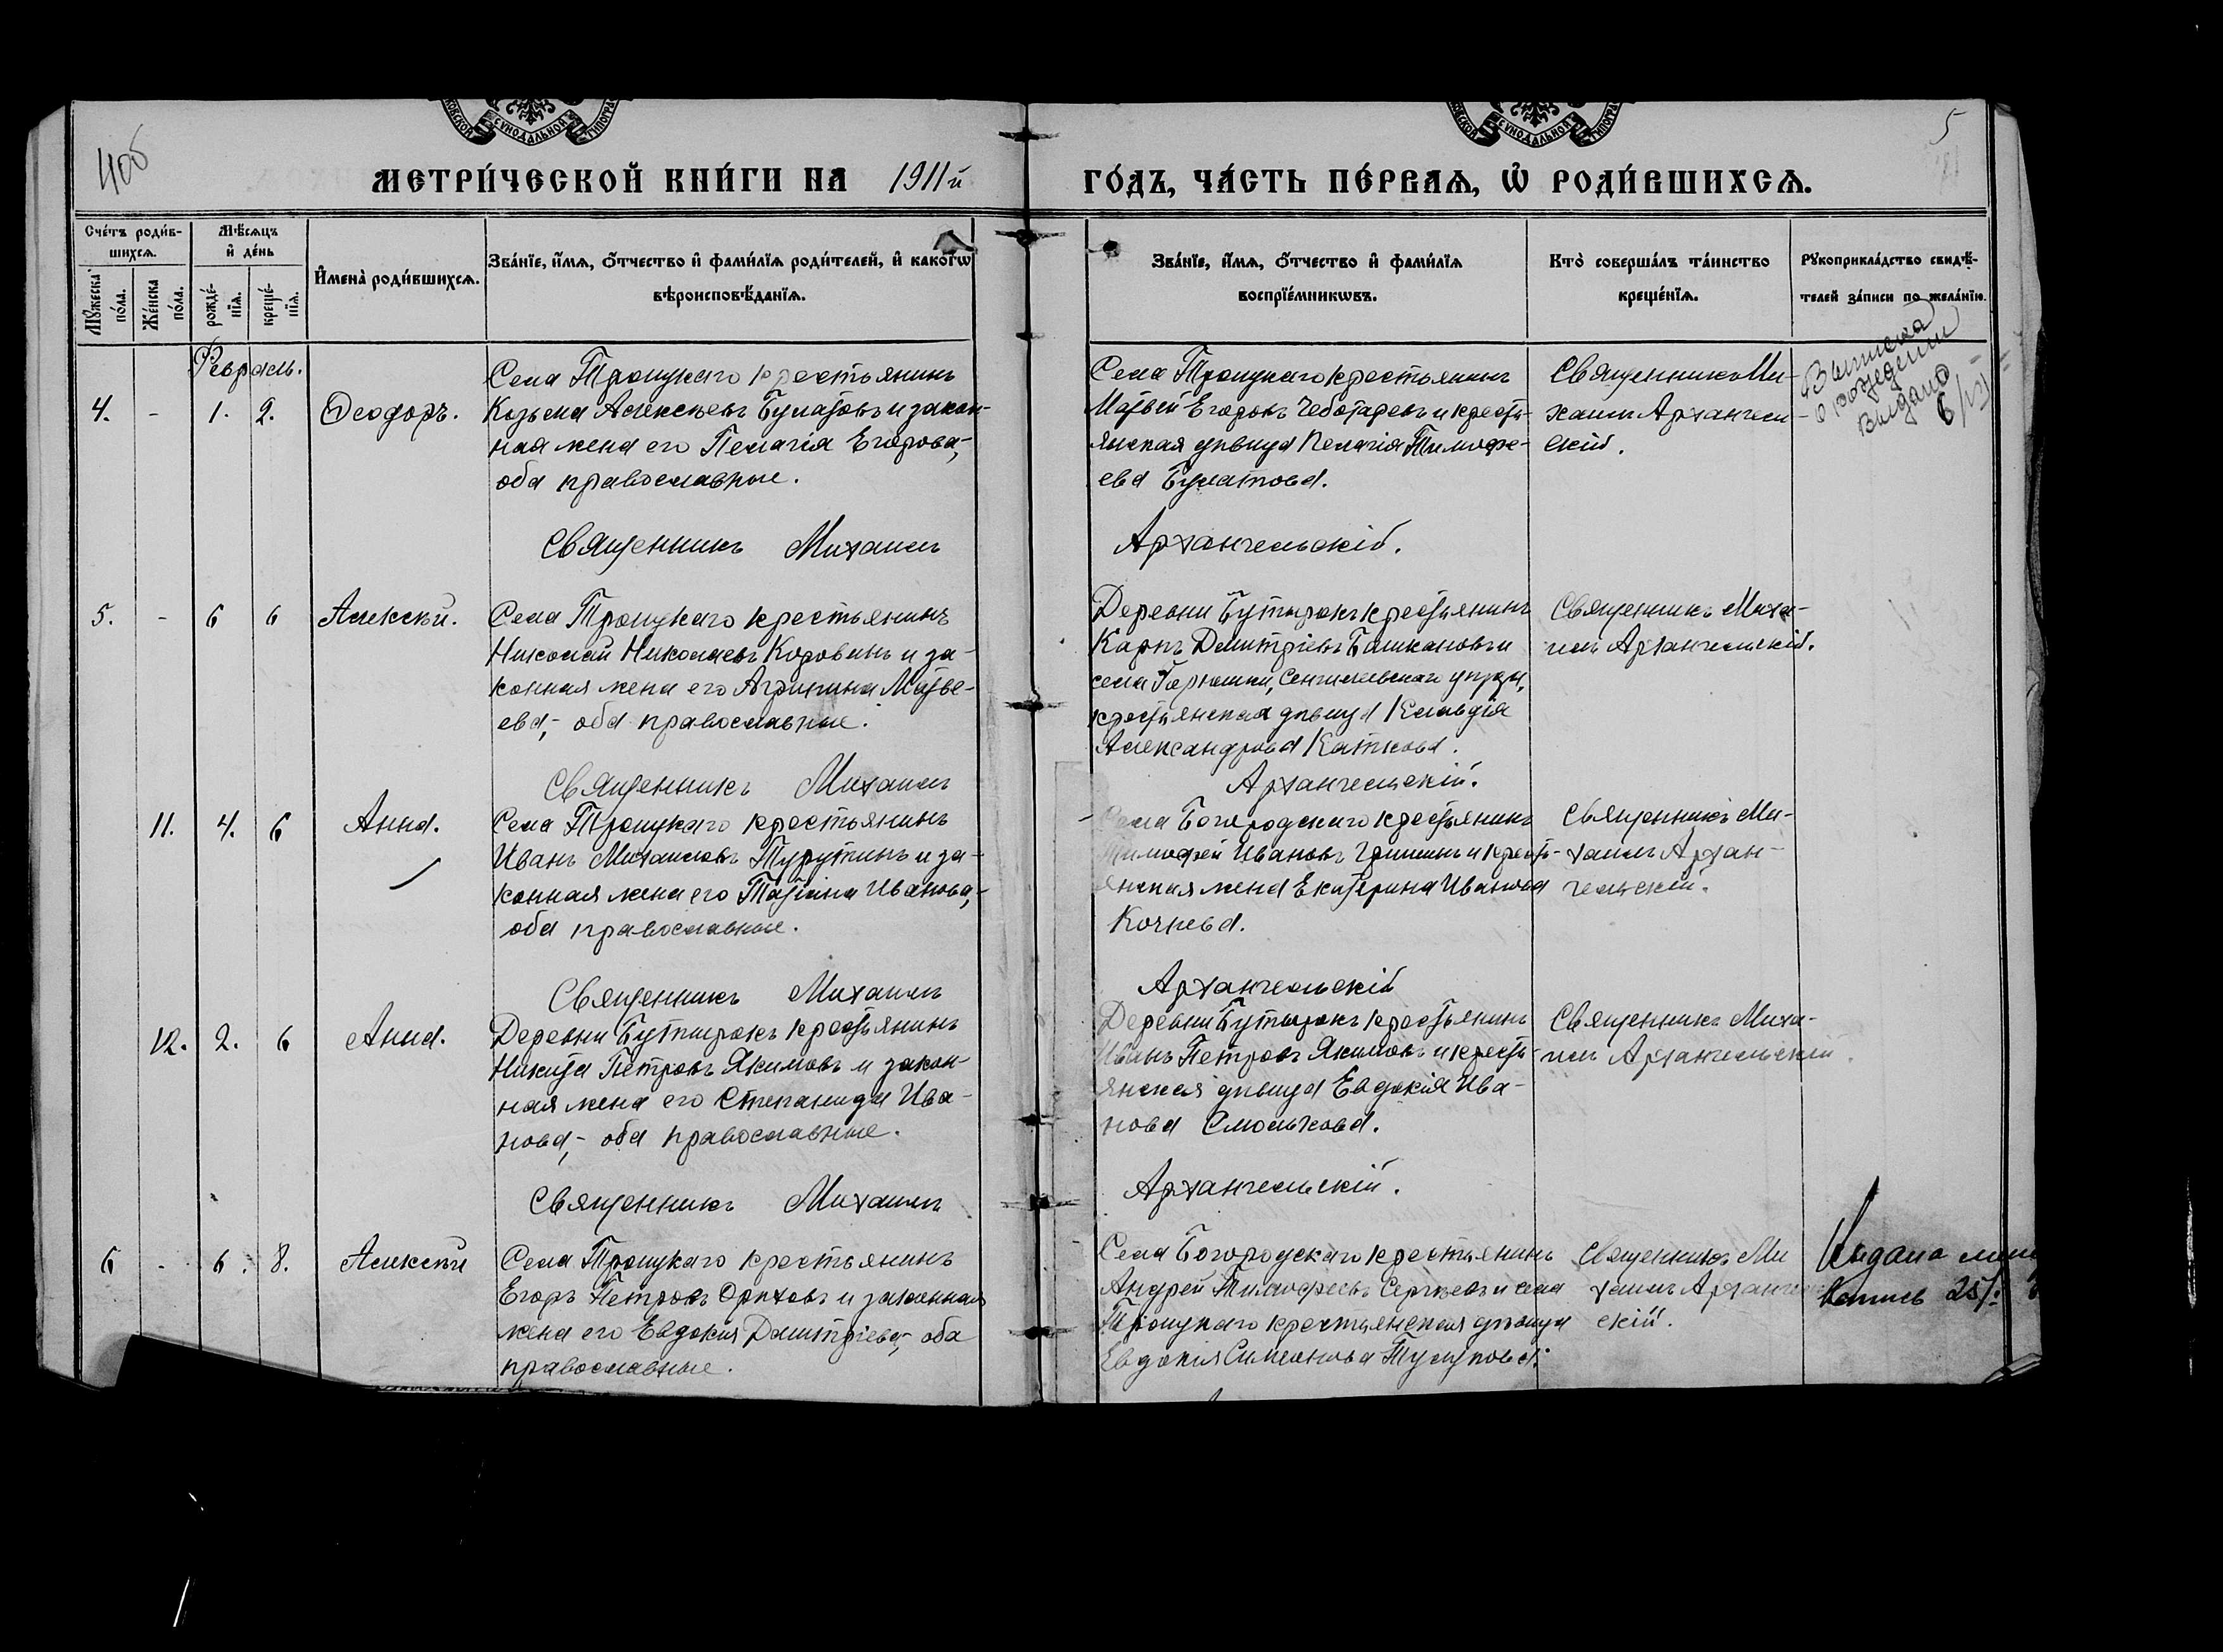 4об
5
МОСКОВСКОЙ СѴНОДАЛЬНОЙ ТИПОГРА
МОСКОВСКОЙ СѴНОДАЛЬНОЙ ТИПОГРА
МЕТРИ́ЧЕСКОЙ КНИ́ГИ НА 1911й
ГО́ДЪ, ЧА́СТЬ ПЕ́РВАѦ, Ѽ РОДИ́ВШИХСѦ.
Сче́тъ роди́в-
шихсѧ.
Мꙋ́жеска по́ла.
Же́нска по́ла.
Мѣ́сѧцъ
и҆ де́нь
рожде́-
нїѧ.
креще́-
нїѧ.
И҆мена̀ роди́вшихсѧ.
Зва́нїе, и҆́мѧ, ѻ҆́тчество и҆ фами́лїѧ роди́телей, и҆ како́гѡ
вѣроисповѣ́данїѧ.
Зва́нїе, и҆́мѧ, ѻ҆́тчество и҆ фами́лїѧ
воспрїе́мникѡвъ.
Кто̀ соверша́лъ та́инство
креще́нїѧ.
Рꙋкоприкла́дство свидѣ́-
телей за́писи по жела́нїю.
Февраль.
4.
-
1.
2.
Ѳеодоръ.
Села Троицкаго крестьянинъ
Козьма Алексѣевъ Булатовъ и закон-
ная жена его Пелагія Егорова,-
оба православные.
Села Троицкаго крестьянинъ
Матвей Егоровъ Чеботаревъ и кресть-
янская дѣвица Пелагія Тимофе-
ева Булатова.
Священникъ Ми-
хаилъ Архангель-
скій.
Выписка
о рождении
выдано
Священникъ Михаилъ
Архангельскій.
5.
-
6
6
Алексѣй.
Села Троицкаго крестьянинъ
Николай Николаевъ Коровинъ и за-
конная жена его Агрипина Матве-
ева,- оба православные.
Деревни Бутырокъ крестьянинъ
Карпъ Димитріевъ Башкановъ и
села Горюшки, Сенгилевскаго уѣзда,
крестьянская дѣвица Клавдія
Александрова Каткова.
Священникъ Миха-
илъ Архангельскій.
Священникъ Михаилъ
Архангельскій.
11.
4.
6
Анна.
Села Троицкаго крестьянинъ
Иванъ Михаиловъ Турутинъ и за-
конная жена его Татіана Иванова,-
оба православные.
Села Богородскаго крестьянинъ
Тимофей Ивановъ Гришинъ и кресть-
янская жена Екатерина Иванова
Кочнева.
Священникъ Ми-
хаилъ Архан-
гельскій.
Священникъ Михаилъ
Архангельскій
12.
2.
6
Анна.
Деревни Бутырокъ крестьянинъ
Никита Петровъ Якимовъ и закон-
ная жена его Степанида Ива-
нова,- оба православные.
Деревни Бутырокъ крестьянинъ
Иванъ Петровъ Якимовъ и кресть-
янская дѣвица Евдокія Ива-
нова Смолькова.
Священникъ Миха-
илъ Архангельскій.
Священникъ Михаилъ
Архангельскій.
6
-
6.
8.
Алексѣй
Села Троицкаго крестьянинъ
Егоръ Петровъ Орѣховъ и законная
жена его Евдокія Димитріева,- оба
православные.
Села Богородскаго крестьянинъ
Андрей Тимофеевъ Сергѣевъ и села
Троицкаго крестьянская дѣвица
Евдокія Симеонова
Священникъ Ми
хаилъ Архангель
скій.
Выдана
25/